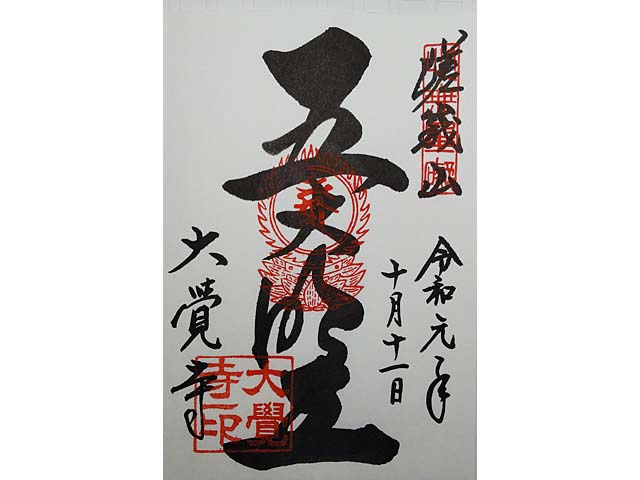 嵯峨山
令和元年
十月十一日
五大明王
大覺寺
大覺
寺印